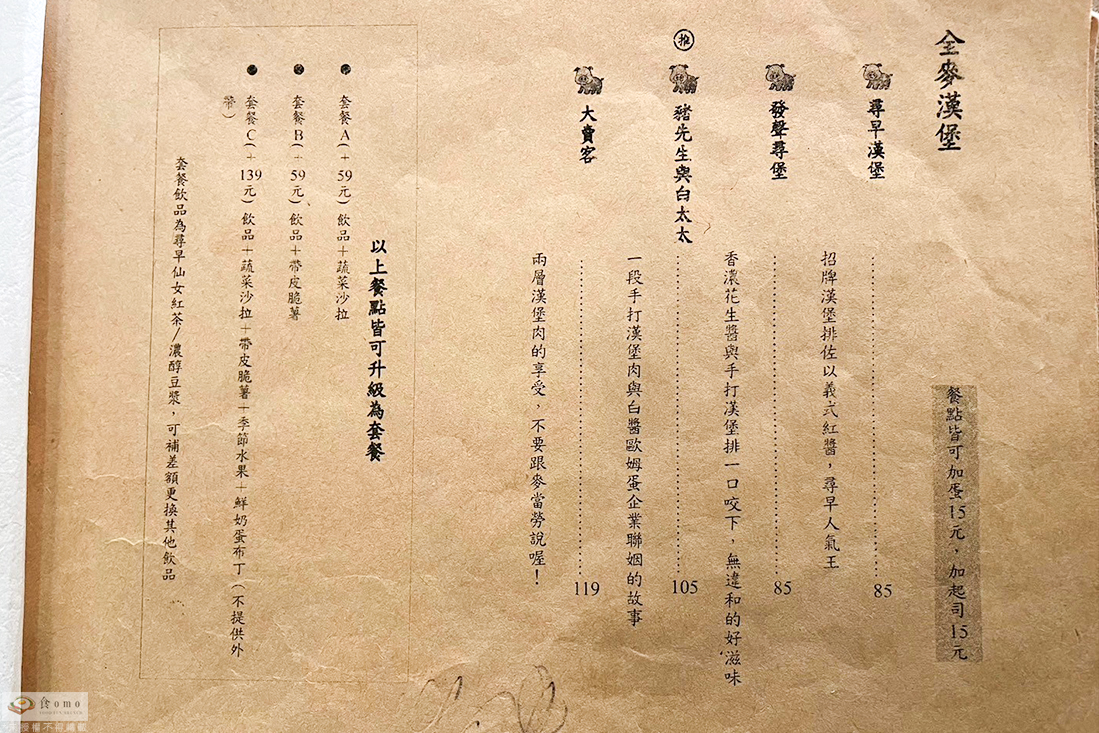 全麥漢堡
餐點皆可加蛋15元，加起司15元
尋早漢堡 85
招牌漢堡排佐以義式紅醬，尋早人氣王
發聲尋堡 85
香濃花生醬與手打漢堡排一口咬下，無違和的好滋味
推
豬先生與白太太 105
一段手打漢堡肉與白醬歐姆蛋企業聯姻的故事
大賣客 119
兩層漢堡肉的享受，不要跟麥當勞說喔！
以上餐點皆可升級為套餐
套餐A(+59元)飲品+蔬菜沙拉
套餐B(+59元)飲品+帶皮脆薯
套餐C(+139元)飲品+蔬菜沙拉+帶皮脆薯+季節水果+鮮奶蛋布丁(不提供外
帶)
套餐飲品為尋早仙女紅茶/濃醇豆漿，可補差額更換其他飲品
食omo